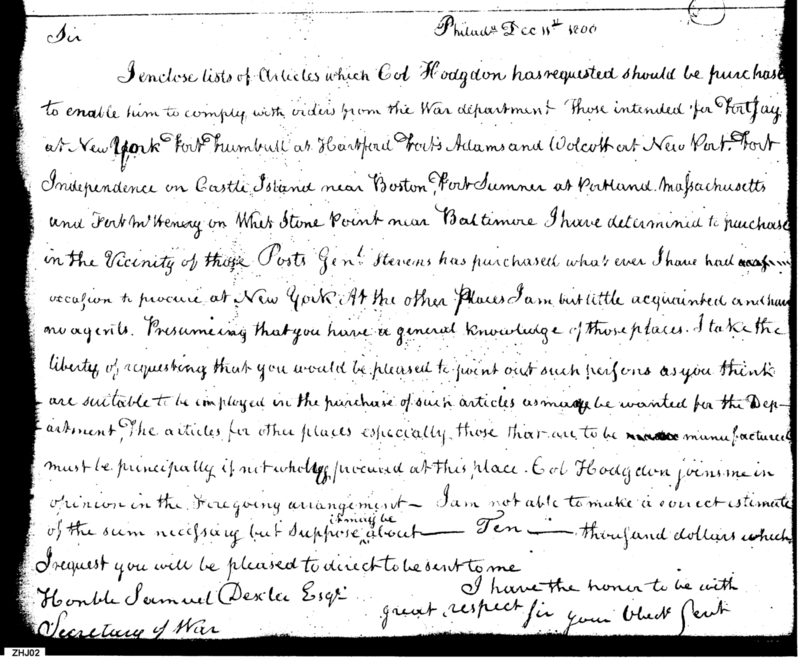 Philadª Dec 11th 1800
Sir
I enclose lists of Articles which Col Hodgdon has requested should be purchase
to enable him to comply with orders from the War department Those intended for Fort Jay
at New York Fort Trumbull at Hartford Forts Adams and Wolcott at New Port. Fort
Independence on Castle Island near Boston, Fort Sumner at Portland. Massachusetts
and Fort McHenery on Whet Stone Point near Baltimore I have determined to purchase
in the Vicinity of those Posts Genl Stevens has purchased what ever I have had
occasion to procure at New York. At the other Places I am but little acquainted and have
no agents. Presumeing that you have a general knowledge of those places. I take the
liberty of requesting that you would be pleased to point out such persons as you think
are suitable to be imployed in the purchase of such articles as may be wanted for the Dep-
artment, The articles for other places especially those that are to be manufactured
must be principally if not wholly procured at this place. Col Hodgdon joins me in
opinion in the Foregoing arrangement - I am not able to make a correct estimate
of the sum necessary but suppose it may be about — Ten — thousand dollars which
I request you will be pleased to direct to be sent to me
I have the honor to be with
great respect Sir your Obedt Servt
Honble Samuel Dexter Esqr
Secretary of War
ZHJ02